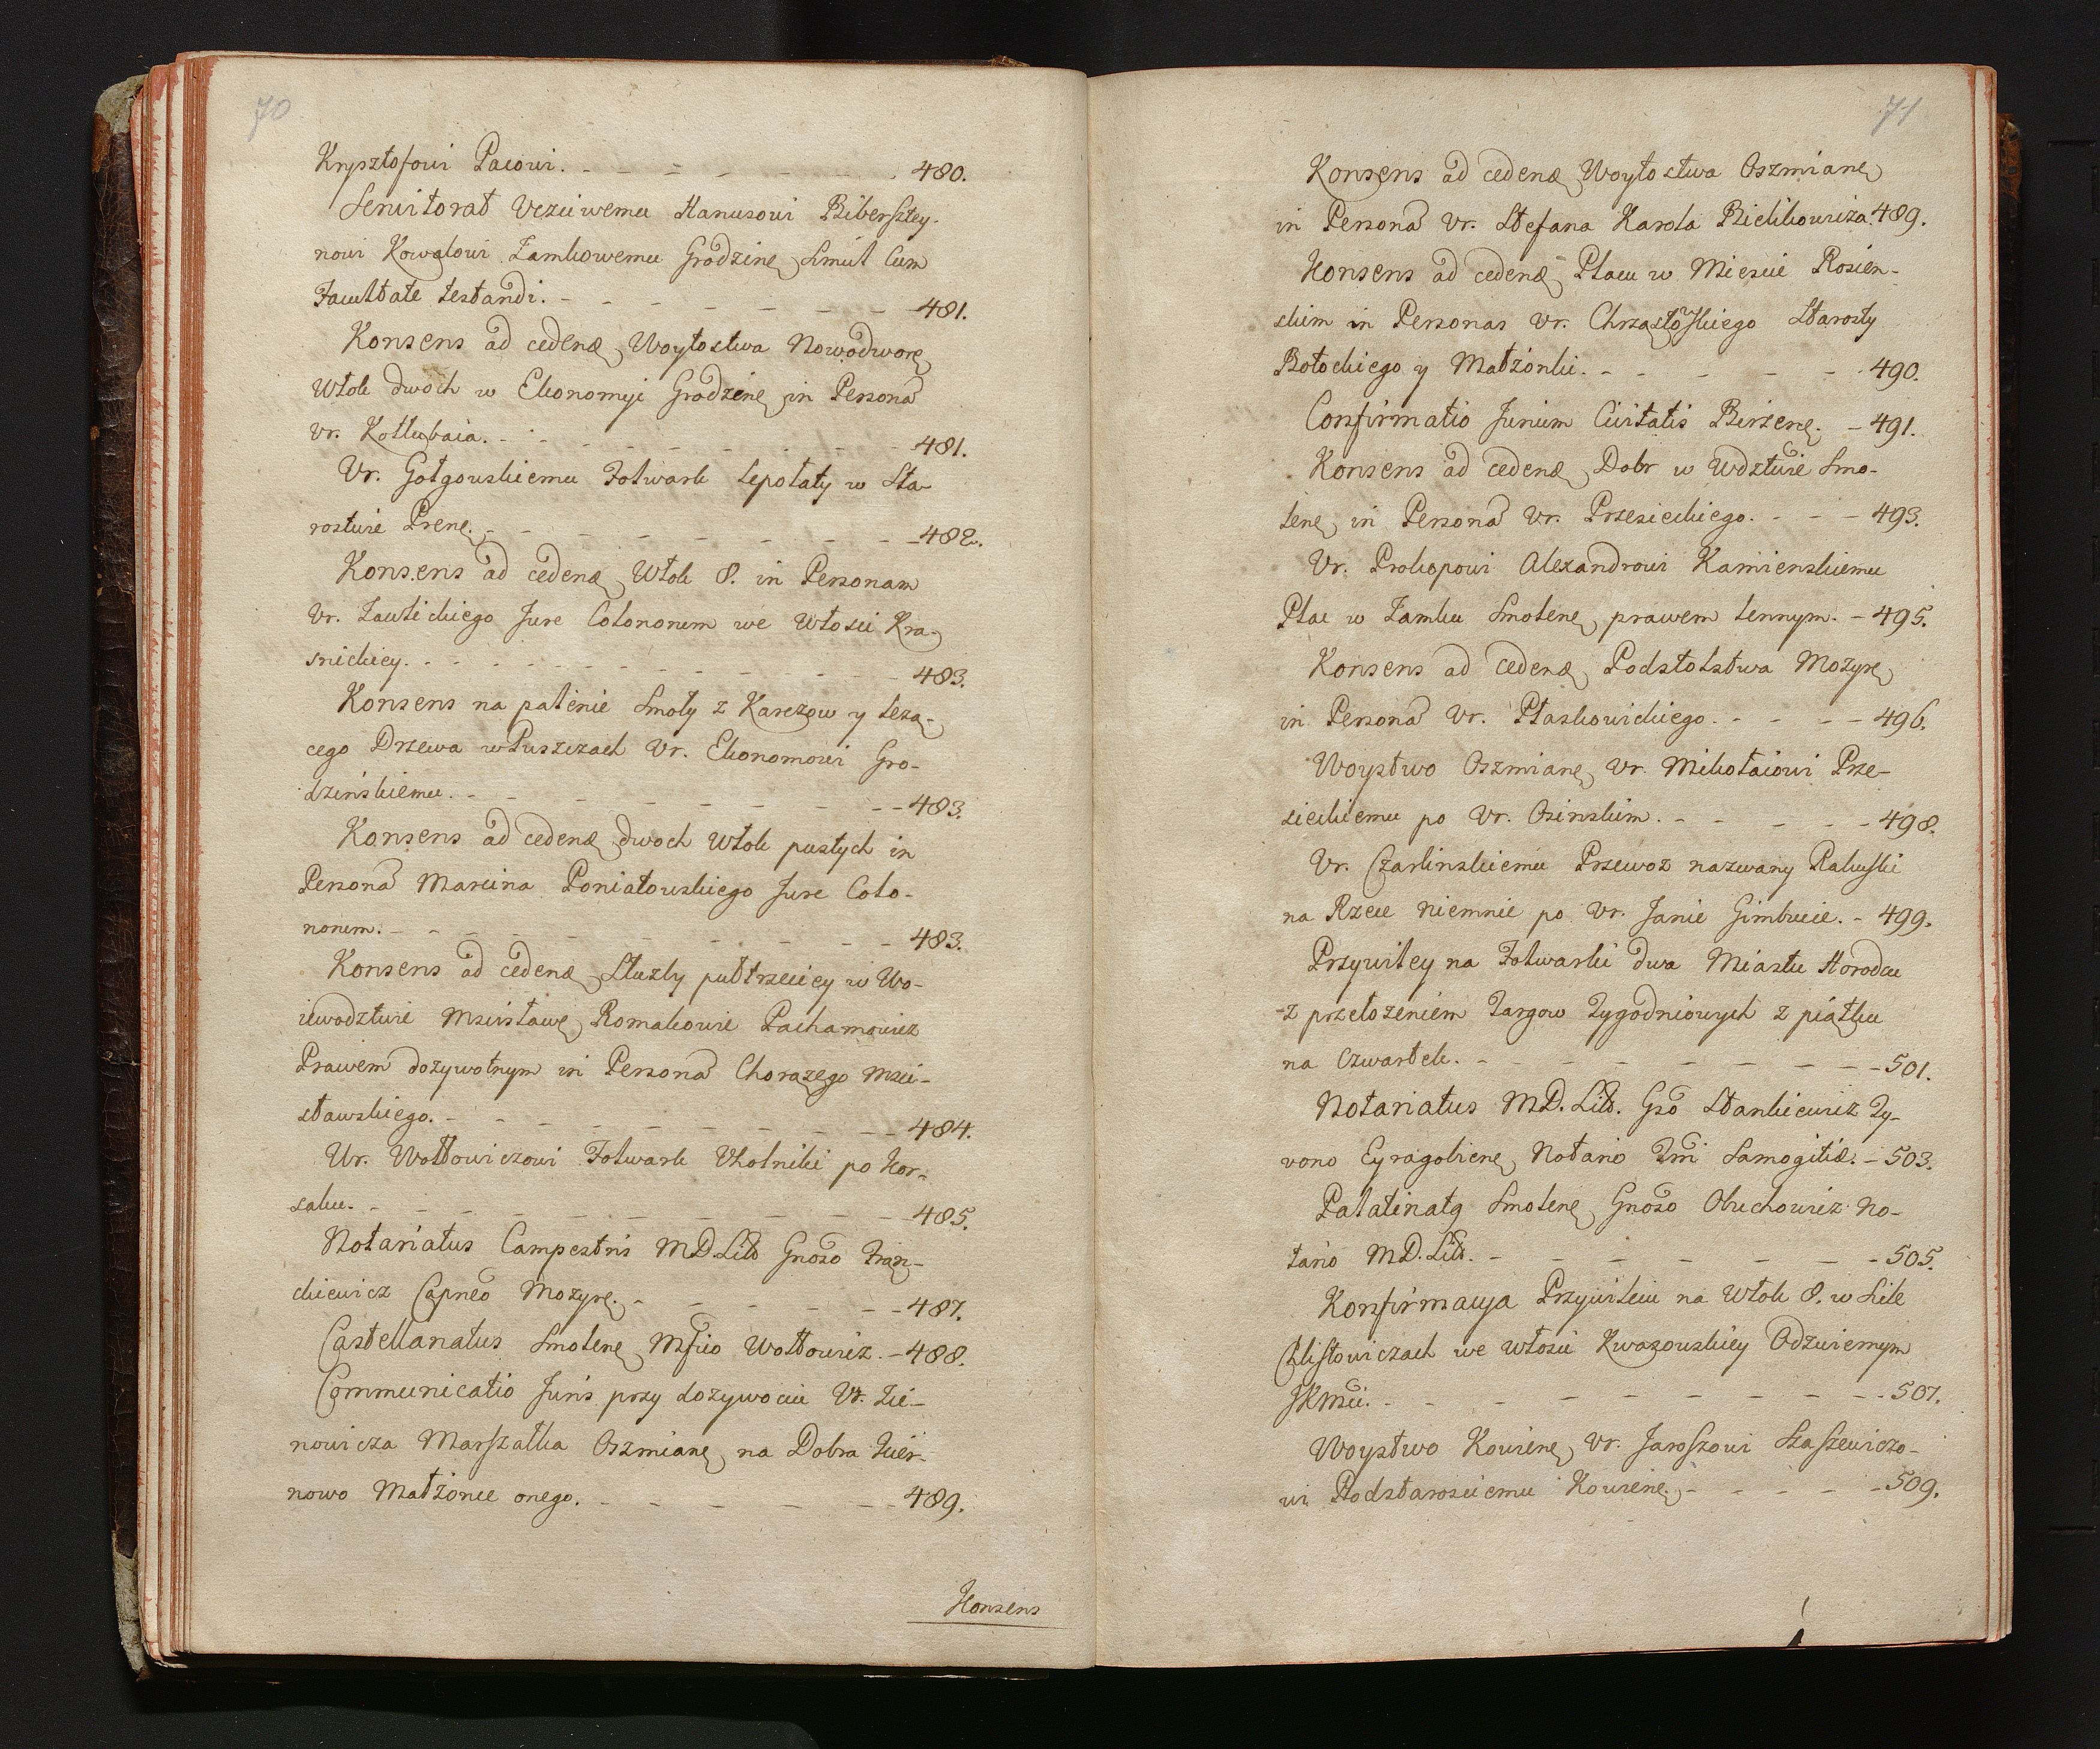 70
Krysztofowi Pacowi. - - - - - - 480.
Servitorat Uczciwemu Hanusowi Bibersztey-
nowi Kowalowi Zamkowemu Grodzinę simul Cum
Facultate testandi. - - - - - 481.
Konsens ad cedenđ Woytostwa Nowodworę
Włok dwoch w Ekonomyi Grodzinę in Persona
Vr. Kotłubaia. - - - - - - 481.
Vr. Gołgowskiemu Folwark Lepołaty w Sta-
rostwie Prenę. - - - - - - 482.
Konsens ad cedenđ Włok 8. in Personam
Vr. Zawlickiego Jure Colonorum we Włosci Kra-
snickiey. - - - - - - - 483.
Konsens na palenie Smoły z Karczow y leza-
cego Drzewa w Puszczach Vr. Ekonomowi Gro-
dzinskiemu. - - - - - - - 483.
Konsens ad cedenđ dwoch Włok pustych in
Persona Marcina Poniatowskiego Jure Colo-
norum. - - - - - - - 483.
Konsens ad cedenđ Służby pułtrzeciey w Wo-
iewodztwie Mscisławę Romakowie Pachamowicz
Prawem dożywotnym in Persona Chorązego Msci-
sławskiego. - - - - - - - 484.
Ur. Wołłowiczowi Folwark Vholniki po Kor-
saku. - - - - - - - 485.
Notariatus Campestris M.D. Litt Gnoso Fran-
ckiewicz Capneo Mozyrę. - - - - - 487.
Castellanatus Smolenę Mfico Wołłowicz. - 488.
Communicatio Juris przy dożywociu Vr. Zie-
nowicza Marszałka Oszmianę na Dobra Kier-
nowo Małżonce onego. - - - - - 489.
Konsens
71
Konsens ad cedenđ Woytostwa Oszmianę
in Persona Vr. Stefana Karola Bielikowicza. 489.
Konsens ad cedenđ Placu w Miescie Rosien-
skim in Personas Vr. Chrząstowskiego Starosty
Botockiego y Małżonki. - - - - - 490.
Confirmatio Jurium Civitatis Birżenę. - 491.
Konsens ad cedenđ Dobr w Wdztwie Smo-
lenę in Persona Vr. Przesieckiego. - - - 493.
Vr. Prokopowi Alexandrowi Kamienskiemu
Plac w Zamku Smolenę prawem lennym. - 495.
Konsens ad cedenđ Podstolstwa Mozyrę
in Persona Vr. Płaskowickiego. - - - - 496.
Woystwo Oszmianę Vr. Mikołaiowi Prze-
sieckiemu po Vr. Osinskim. - - - - - 498.
Vr. Czarlinskiemu Przewoz nazwany Rakuski
na Rzece Niemnie po Vr. Janie Gimbucie. - 499.
Przywiley na Folwarki dwa Miastu Horodcu
z przełozeniem Targow Tygodniowych z piątku
na Czwartek. - - - - - - - 501.
Notariatus M.D. Litt. Gso Stankiewicz Ty-
vono Eyragolienę Notario Tri Samogitiæ. - 503.
Palatinatq Smolenę Gnoso Obuchowicz No-
tario M.D. Litt. - - - - - - 505.
Konfirmacya Przywileiu na Włok 8. w Siele
Chlistowiczach we włosci Kwasowskiey Odzwiernym
JKMci. - - - - - - - 507.
Woystwo Kowienę Vr. Jaroszowi Staszewiczo-
wi Podstarosciemu Kowienę. - - - - - 509.